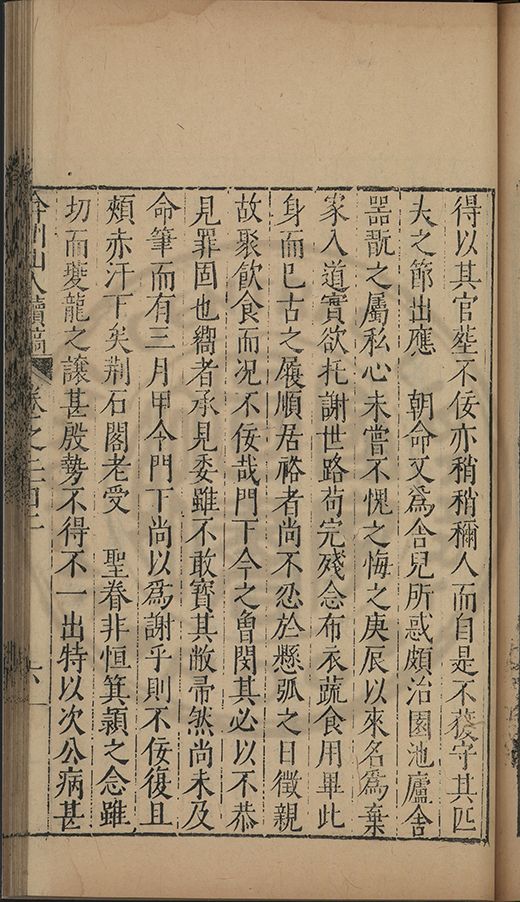 得以其官塟不佞亦稍稍稱人而自是不獲守其匹
夫之節出應　朝命又爲舍兒所惑頗治園池廬舍
器翫之屬私心未嘗不愧之悔之庚辰以來名爲棄
家入道實欲托謝世路茍完殘念布衣蔬食用畢此
身而巳古之履順居裕者尚不忍於懸弧之日徵親
故聚飲食而况不佞哉門下今之曾閔其必以不恭
見罪固也嚮者承見委雖不敢寳其敝帚然尚未及
命筆而有三月甲今門下尚以爲謝乎則不佞復且
頰赤汗下矣荆石閣老受　聖眷非恒箕潁之念雖
切而夔龍之譲甚殷勢不得不一出特以次公病甚
弇州山人續稿　卷之二百　六